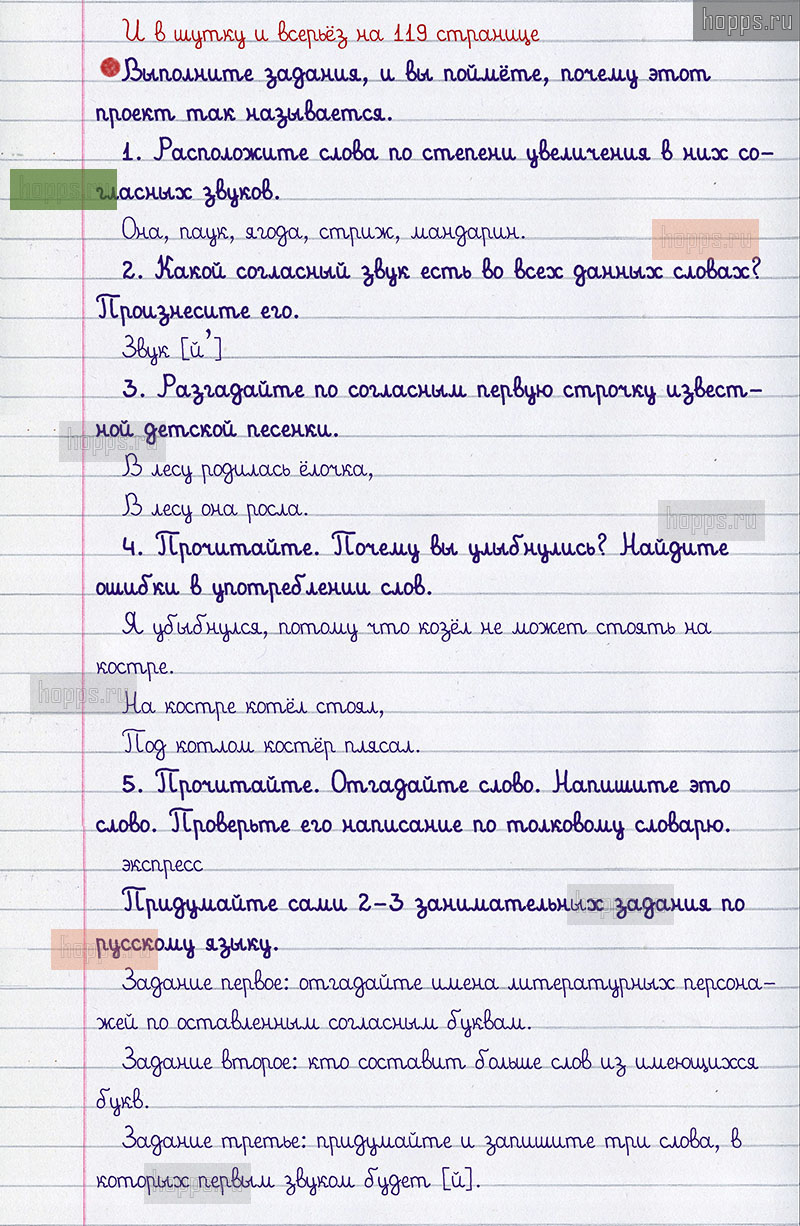 hopps.ru
И в шутку и всерьёз на 119 странице
Выполните задания, и вы поймёте, почему этот
проект так называется.
1. Расположите слова по степени увеличения в них со-
гласных звуков.
hopps.ru
Она, паук, ягода, стриж, мандарин.
hopps.ru
2. Какой согласный звук есть во всех данных словах?
Произнесите его.
Звук [й’]
3. Разгадайте по согласным первую строчку извест-
ной детской песенки.
hopps.ru
В лесу родилась ёлочка,
В лесу она росла.
hopps.ru
4. Прочитайте. Почему вы улыбнулись? Найдите
ошибки в употреблении слов.
Я убыбнулся, потому что козёл не может стоять на
костре.
hopps.ru
На костре котёл стоял,
Под котлом костёр плясал.
5. Прочитайте. Отгадайте слово. Напишите это
слово. Проверьте его написание по толковому словарю.
экспресс
Придумайте сами 2-3 занимательных задания по
hopps.ru
русскому языку.
hopps.ru
Задание первое: отгадайте имена литературных персона-
жей по оставленным согласным буквам.
Задание второе: кто составит больше слов из имеющихся
букв.
Задание третье: придумайте и запишите три слова, в
которых первым звуком будет [й].
hopps.ru